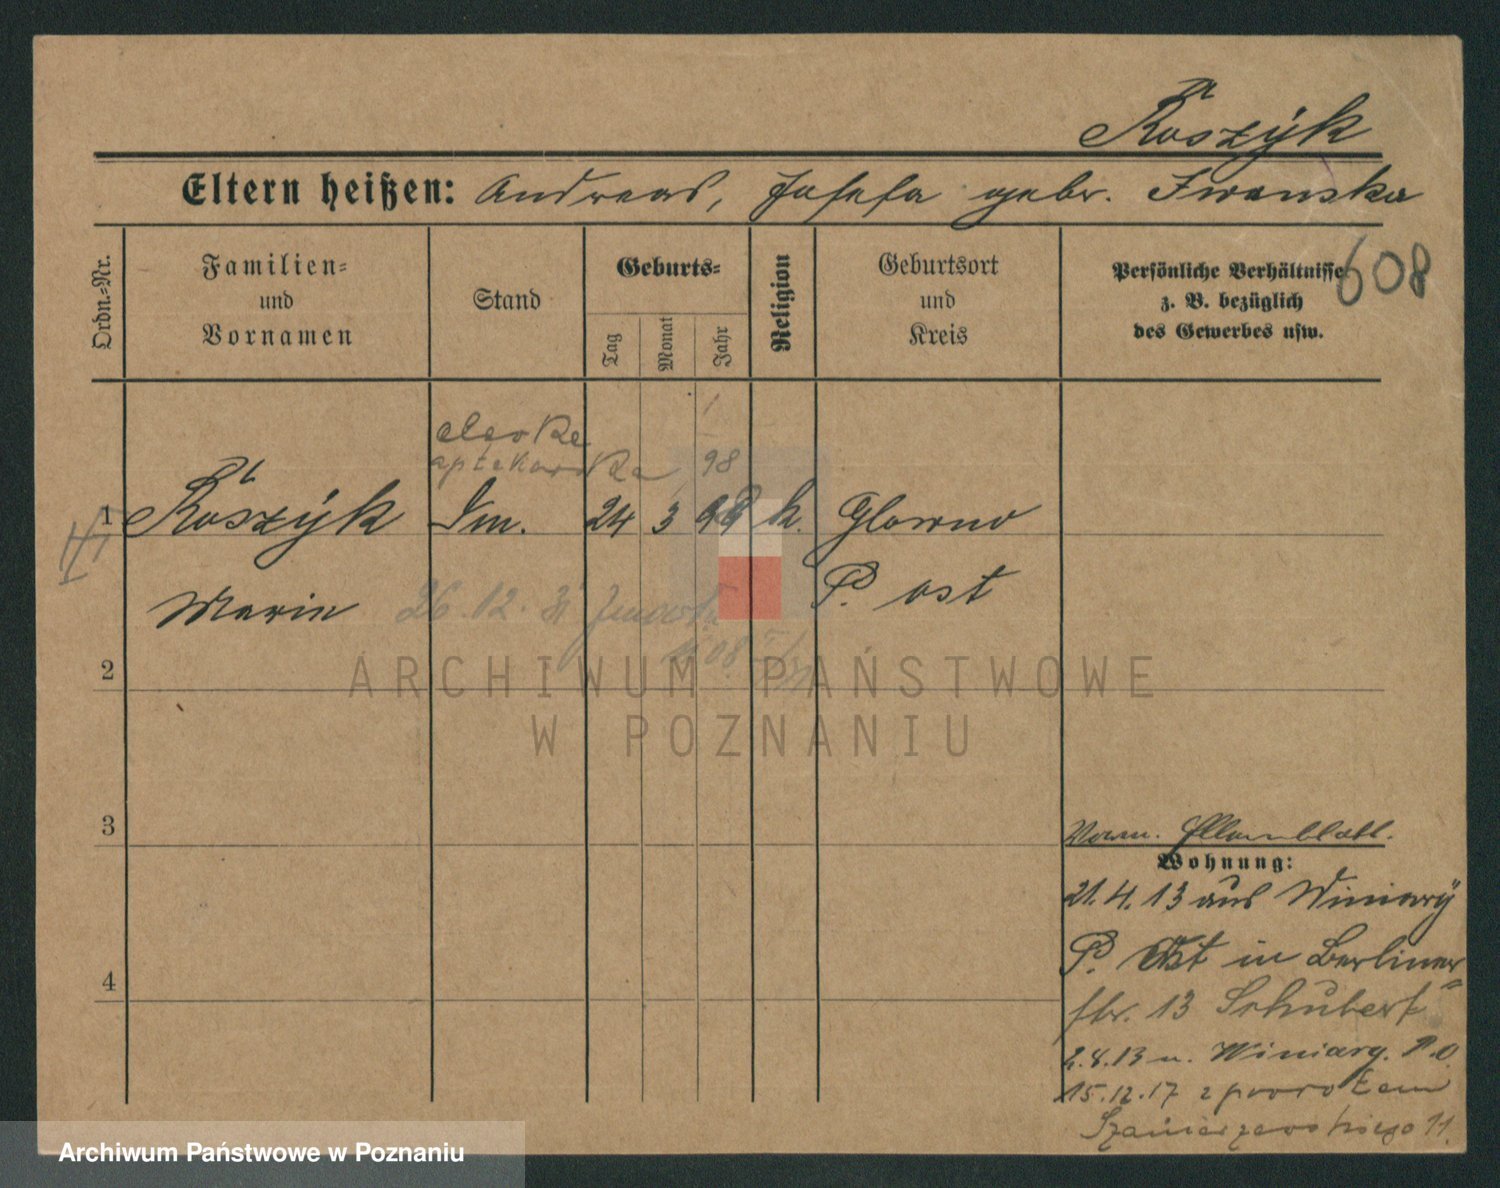 Roszÿk
Eltern heißen: Andreas, Josefa gebr. Iwanska
Ordn.-Nr.
Familien-
und
Vornamen
Stand
Geburts-
Tag
Monat
Jahr
Religion
Geburtsort
und
Kreis
Persönliche Verhältnisse
z. B. bezüglich
des Gewerbes usw.
608
aptekarska 98
1 Roszÿk Dm. 24 3 k. Glowno
Marie P. ost
26.12.
2
3
4
Wohnung:
21.4.13 aus Winiary
P. Ost in Berliner
str. 13 Schubert
2.8.13 n. Winiary. P.O.
15.12.17 z powrotem
11.
ARCHIWUM PAŃSTWOWE
W POZNANIU
Archiwum Państwowe w Poznaniu